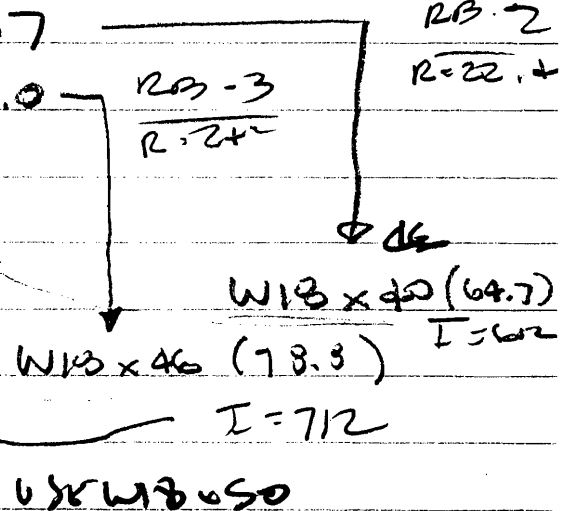 .7
RB-2
R=22.
.0
RB-3
R=
W18 x 40 (64.7)
I=612
W18 x 46 (78.8)
I=712
USE W18x50